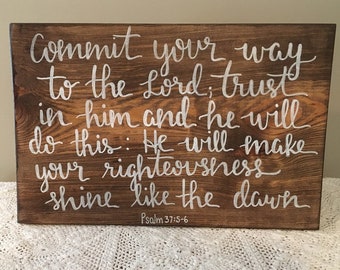 Commit your way
to the Lord; trust
in him and he will
do this: He will make
your righteousness
shine like the dawn
Psalm 37:5-6